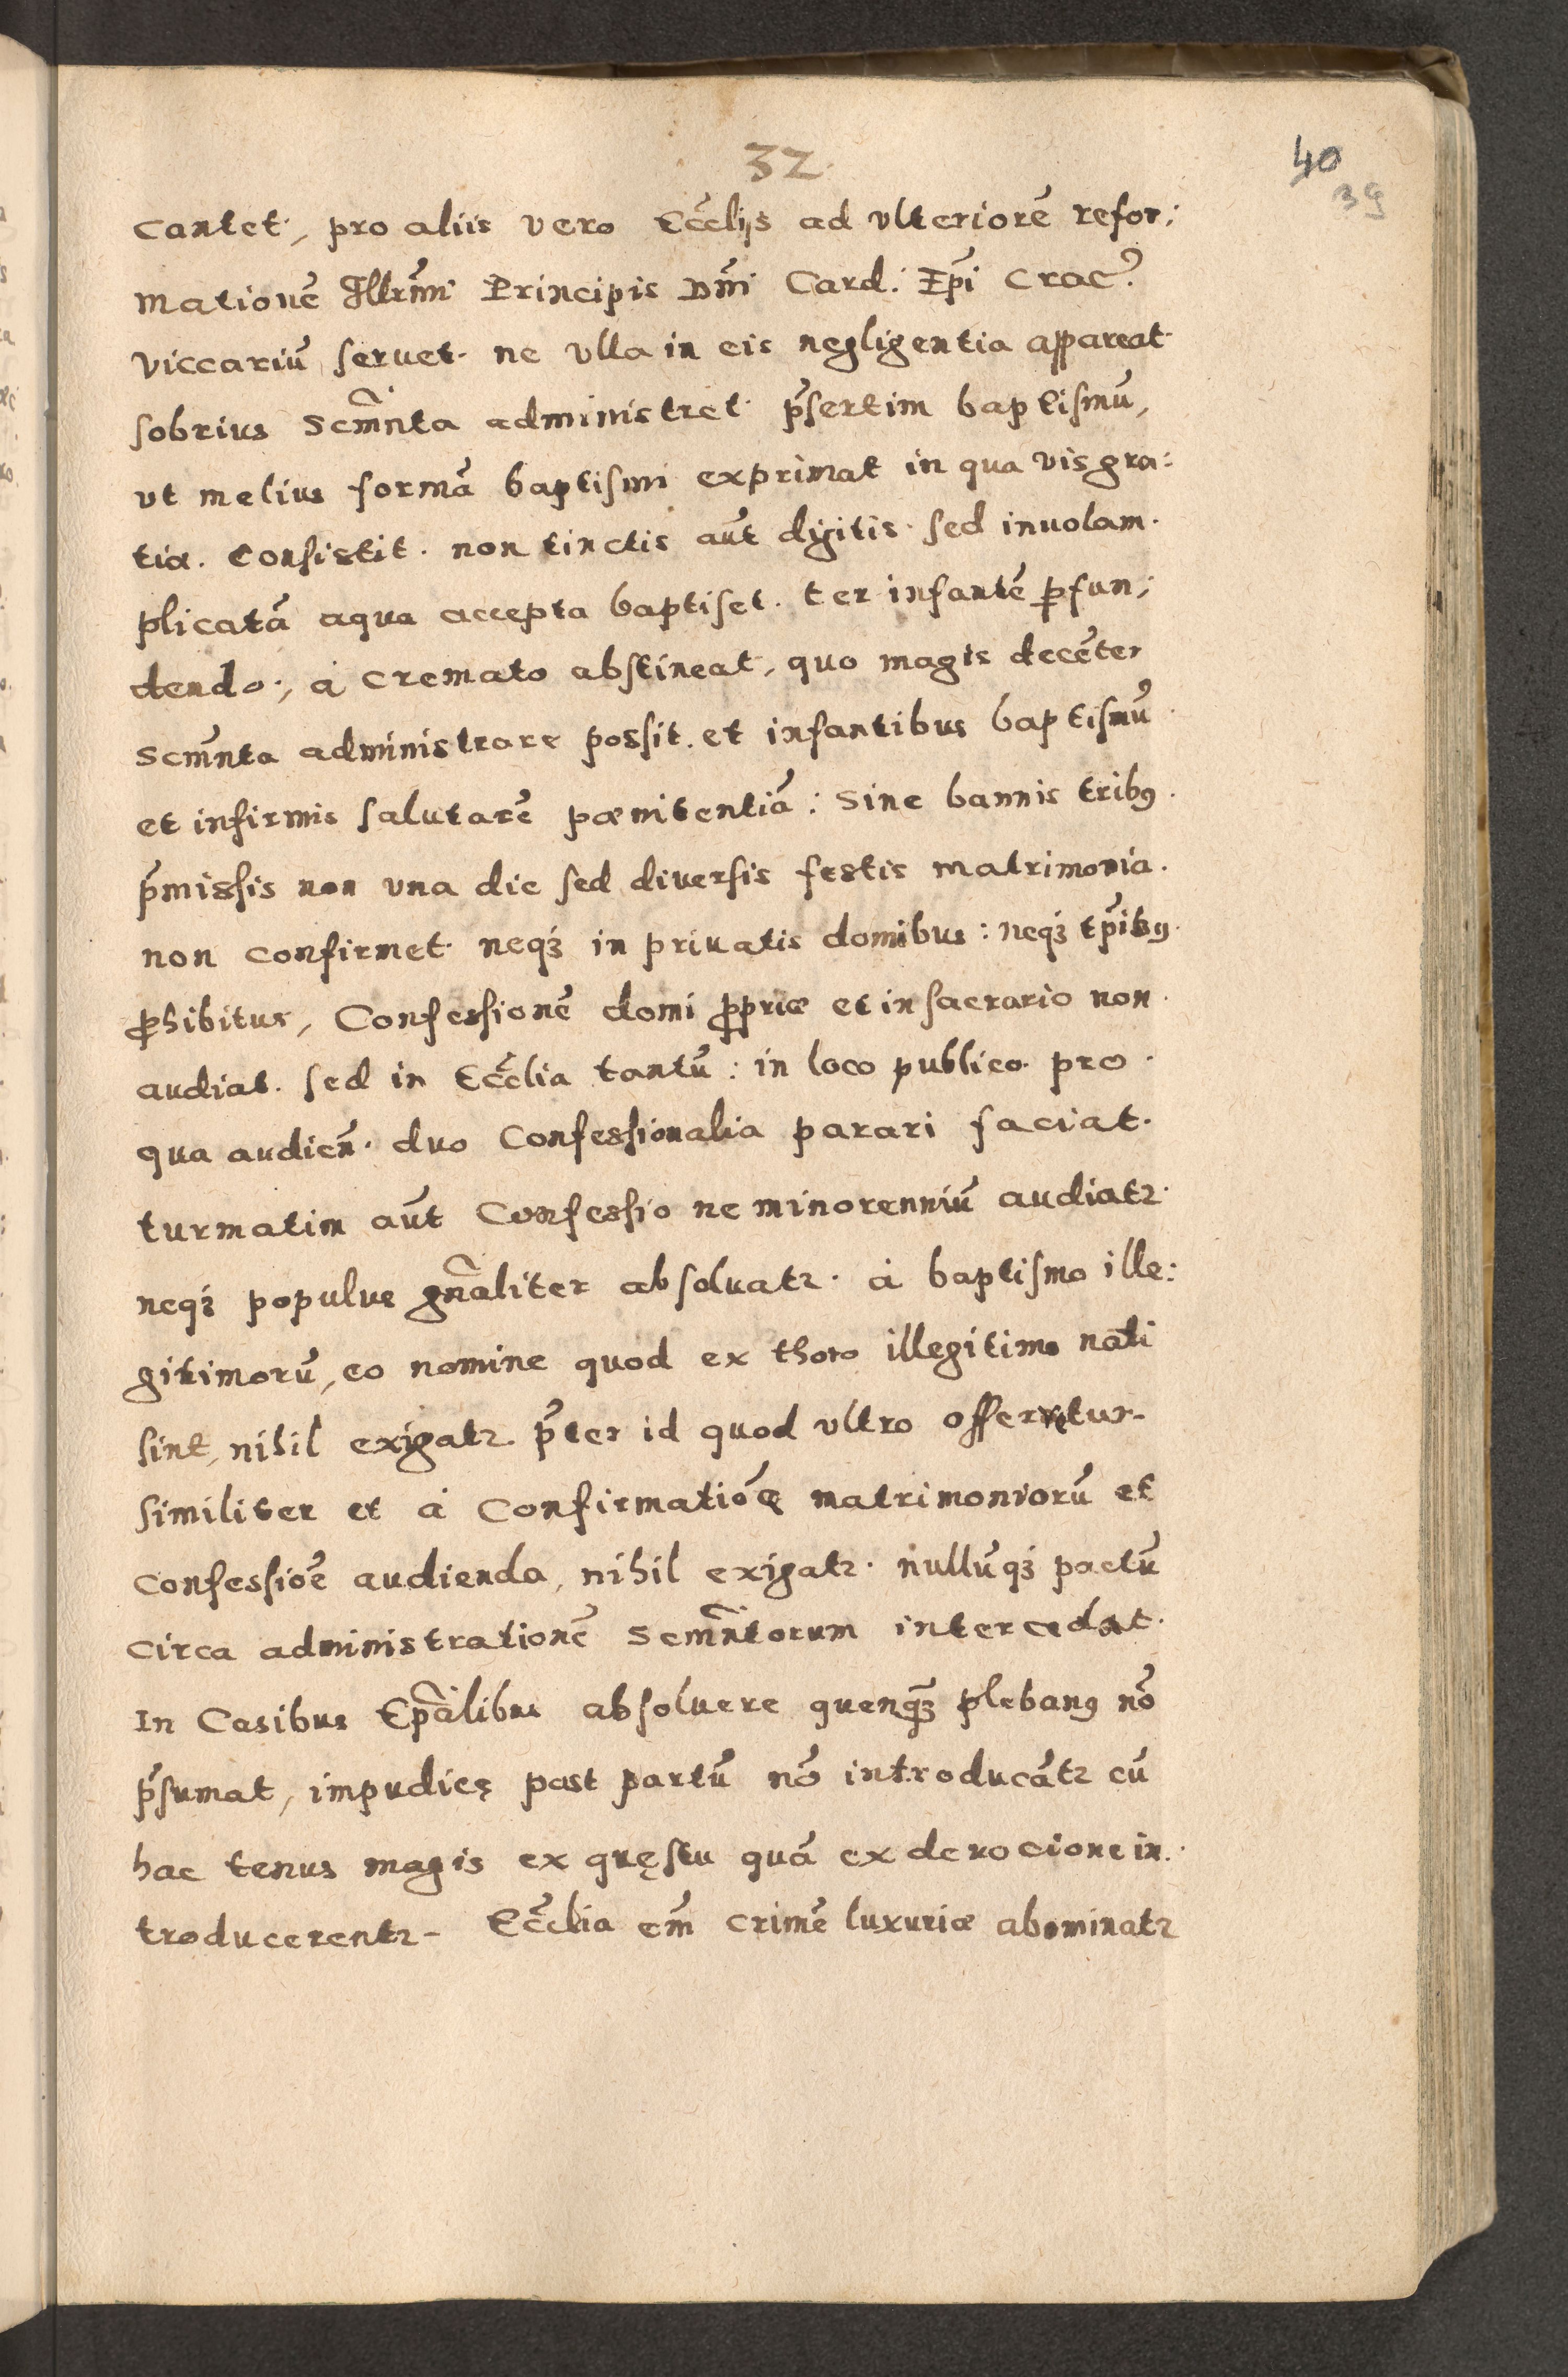 32.
40
39
cantet, pro aliis vero Eccl̃ijs ad vlteriorẽ refor:
mationẽ Illr̃mi Principis Dñi Card: Ep̃i Crac̃.
viccariũ seruet. ne vlla in eis negligentia appareat
sobrius Scm̃nta administret p̃sertim baptismũ,
vt melius formã baptismi exprimat in qua vis gra:
tiæ. Consistit. non tinctis aũt digitis. sed in uolam.
plicatã aqua accepta baptiset. ter infantẽ ꝑfun:
dendo., à cremato abstineat, quo magis decẽter
Scm̃nta administrare possit. et infantibus baptismũ.
et infirmis salutarẽ pœnitentiã: Sine bannis tribꝰ.
p̃missis non vna die sed diuersis festis matrimonia.
non confirmet. neqꝫ in priuatis domibus: neqꝫ tp̃ibꝰ.
ꝓhibitus, Confessionẽ domi ꝓpriæ et in sacrario non.
audiat. sed in Eccl̃ia tantũ: in loco publico. pro.
qua audien̄. duo Confessionalia parari faciat.
turmatim aũt Confessio ne minorenniũ audiatꝛ.
neqꝫ populus gñaliter absoluatꝛ. à baptismo ille:
gitimorũ, eo nomine quod ex thoro illegitimo nati
sint, nihil exigatꝛ. p̃ter id quod vltro offerretur.
similiter et à Confirmatiõe matrimoniorũ et
confessiõe audienda, nihil exigatꝛ. nullũqꝫ pactũ
circa administrationẽ Scm̃ntorum intercedat.
In Casibus Ep̃alibus absoluere quenqꝫ̃ plebanꝰ nõ
p̃sumat, impudicę post partũ nõ introducãtꝛ cũ
hac tenus magis ex quęstu quã ex deuocione in.
troducerentꝛ- Eccl̃ia em̃ crimẽ luxuriæ abominatꝛ